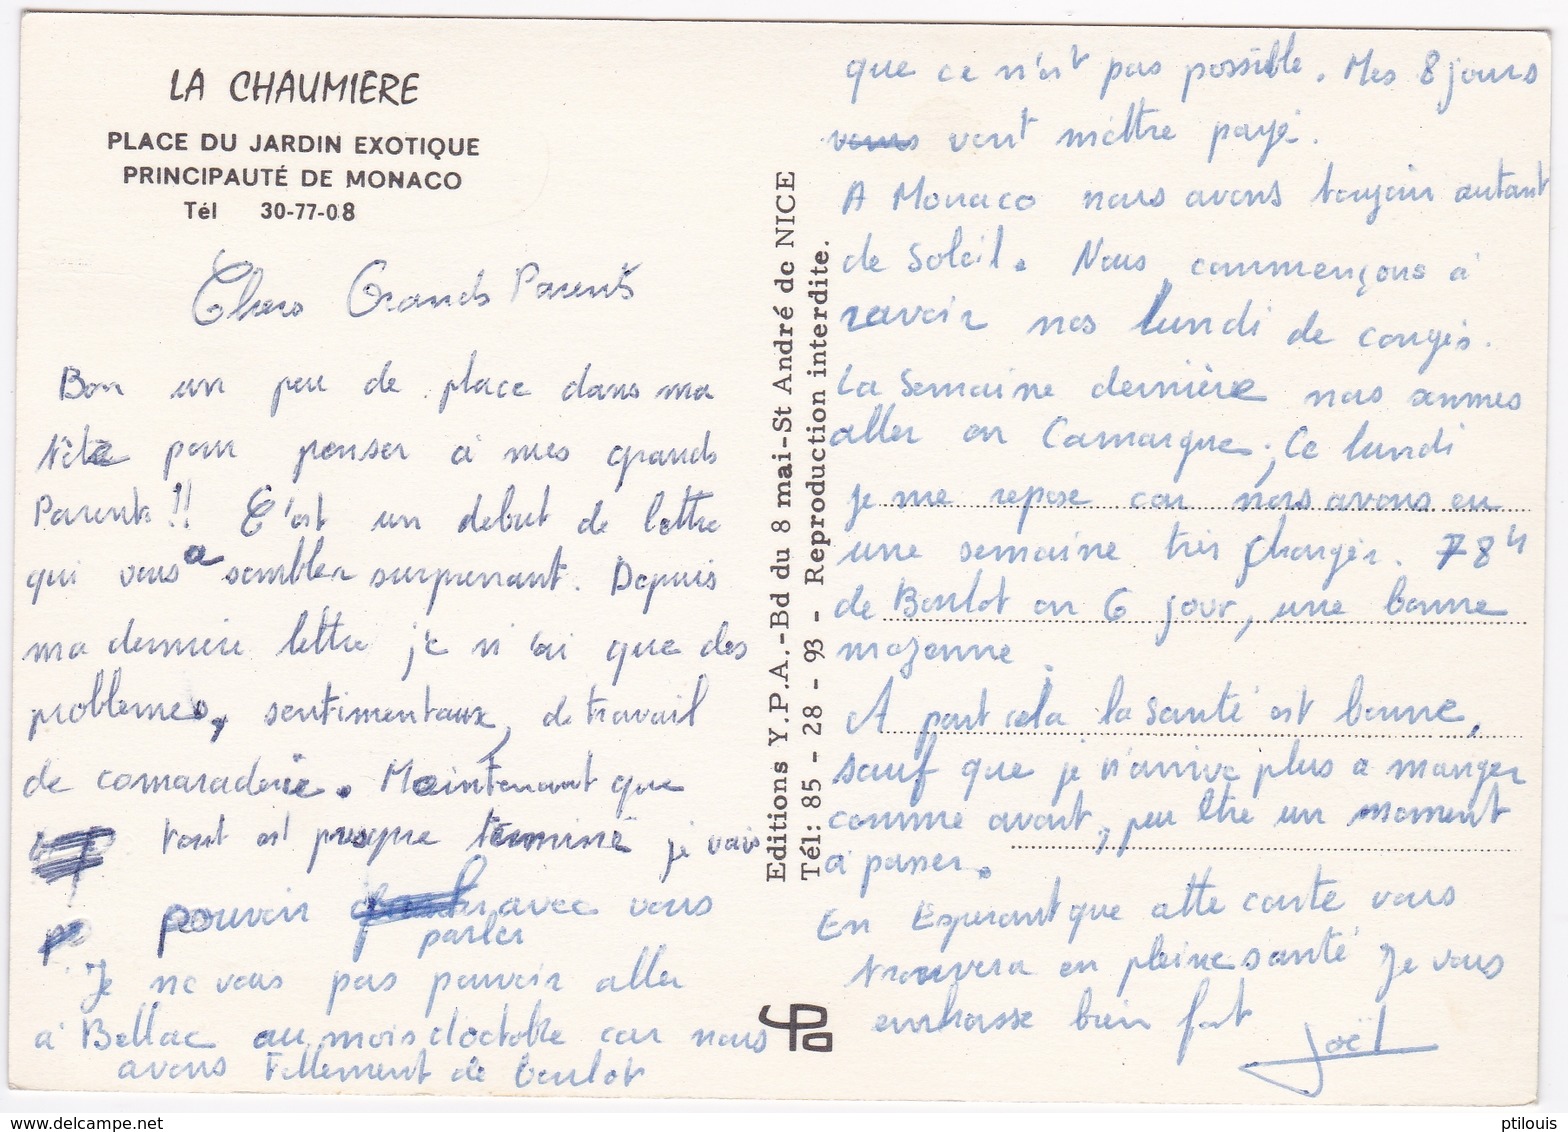 LA CHAUMIERE
PLACE DU JARDIN EXOTIQUE
PRINCIPAUTÉ DE MONACO
Tél 30-77-08
Chers Grands Parents
Bon un peu de place dans ma
tête pour penser à mes grands
Parents !! C'est un debut de lettre
qui vous a sembler surprenant. Depuis
ma dernière lettre je n'ai que des
problemes, sentimentaux, de travail
de camaraderie. Maintenant que
tout est presque terminé je vais
pouvoir avec vous
parler
Je ne vous pas pouvoir aller
à Bellac au mois d'octobre car nous
avons tellement de boulot
que ce n'est pas possible. Mes 8 jours
vous vont mettre payé.
A Monaco nous avons toujour autant
de Soleil. Nous commençons à
ravoir nos lundi de congés.
La Semaine dernière nous sommes
aller en Camargue, Ce lundi
je me repose car nous avons eu
une semaine très charger. 78h
de Boulot en 6 jour, une bonne
moyenne.
A part cela la santé est bonne,
sauf que je n'arrive plus a manger
comme avant, peu être un moment
à passer.
En Esperant que cette carte vous
trouvera en pleine santé Je vous
embrasse bien fort
Joël
Editions Y.P.A.-Bd du 8 mai-St André de NICE
Tél: 85 - 28 - 93 - Reproduction interdite.
ptilouis